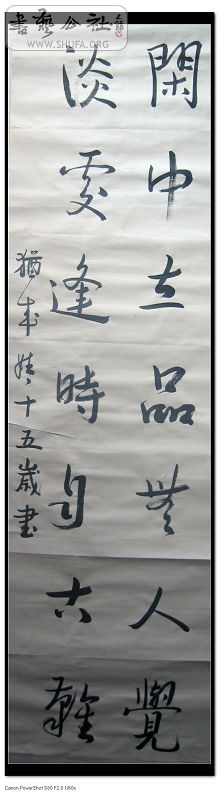 書藝公社
WWW.SHUFA.ORG
閑中立品無人覺
淡處逢時自古難
猶 十五歲書
Canon PowerShot S80 F2.8 1/60s